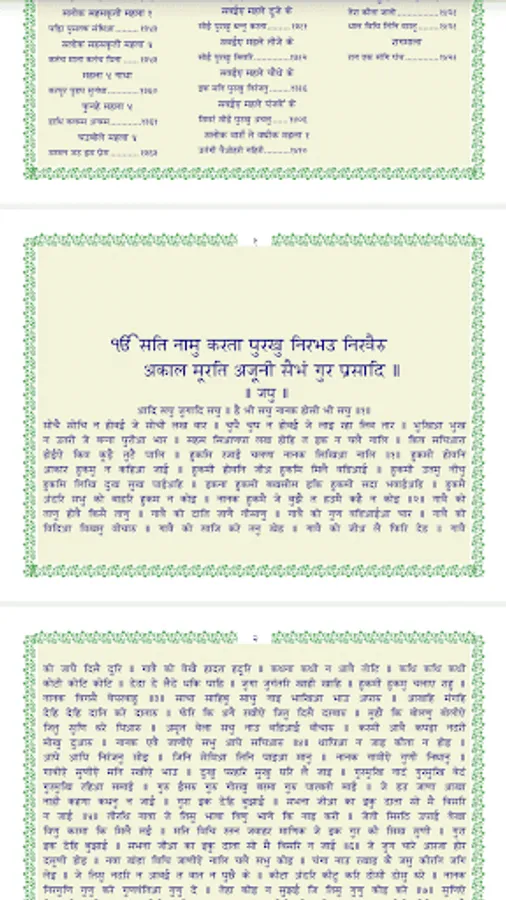 सलोक सहसक्रिती महला १
सलोक सहसक्रिती महला ५
महला ५ गाथा
फुनहे महला ५
चउबोले महला ५
सवईए महले दूजे के
सवईए महले तीजे के
सवईए महले चौथे के
सवईए महले पंजवें के
सलोक वारां ते वधीक महला १
रागमाला
१
ੴ सति नामु करता पुरखु निरभउ निरवैरु
अकाल मूरति अजूनी सैभं गुर प्रसादि ॥
॥ जपु ॥
आदि सचु जुगादि सचु ॥ है भी सचु नानक होसी भी सचु ॥१॥
सोचै सोचि न होवई जे सोची लख वार ॥ चुपै चुप न होवई जे लाइ रहा लिव तार ॥ भुखिआ भुख
न उतरी जे बंना पुरीआ भार ॥ सहस सिआणपा लख होहि त इक न चलै नालि ॥ किव सचिआरा
होईऐ किव कूड़ै तुटै पालि ॥ हुकमि रजाई चलणा नानक लिखिआ नालि ॥१॥ हुकमी होवनि
आकार हुकमु न कहिआ जाई ॥ हुकमी होवनि जीअ हुकमि मिलै वडिआई ॥ हुकमी उतमु नीचु
हुकमि लिखि दुख सुख पाईअहि ॥ इकना हुकमी बखसीस इकि हुकमी सदा भवाईअहि ॥ हुकमै
अंदरि सभु को बाहरि हुकम न कोइ ॥ नानक हुकमै जे बुझै त हउमै कहै न कोइ ॥२॥ गावै को
ताणु होवै किसै ताणु ॥ गावै को दाति जाणै नीसाणु ॥ गावै को गुण वडिआईआ चार ॥ गावै को
विदिआ विखमु वीचारु ॥ गावै को साजि करे तनु खेह ॥ गावै को जीअ लै फिरि देह ॥ गावै
२
को जापै दिसै दूरि ॥ गावै को वेखै हादरा हदूरि ॥ कथना कथी न आवै तोटि ॥ कथि कथि कथी
कोटी कोटि कोटि ॥ देदा दे लैदे थकि पाहि ॥ जुगा जुगंतरि खाही खाहि ॥ हुकमी हुकमु चलाए राहु ॥
नानक विगसै वेपरवाहु ॥३॥ साचा साहिबु साचु नाइ भाखिआ भाउ अपारु ॥ आखहि मंगहि
देहि देहि दाति करे दातारु ॥ फेरि कि अगै रखीऐ जितु दिसै दरबारु ॥ मुहौ कि बोलणु बोलीऐ
जितु सुणि धरे पिआरु ॥ अम्रित वेला सचु नाउ वडिआई वीचारु ॥ करमी आवै कपड़ा नदरी
मोखु दुआरु ॥ नानक एवै जाणीऐ सभु आपे सचिआरु ॥४॥ थापिआ न जाइ कीता न होइ ॥
आपे आपि निरंजनु सोइ ॥ जिनि सेविआ तिनि पाइआ मानु ॥ नानक गावीऐ गुणी निधानु ॥
गावीऐ सुणीऐ मनि रखीऐ भाउ ॥ दुखु परहरि सुखु घरि लै जाइ ॥ गुरमुखि नादं गुरमुखि वेदं
गुरमुखि रहिआ समाई ॥ गुरु ईसरु गुरु गोरखु बरमा गुरु पारबती माई ॥ जे हउ जाणा आखा
नाही कहणा कथनु न जाई ॥ गुरा इक देहि बुझाई ॥ सभना जीआ का इकु दाता सो मै विसरि
न जाई ॥५॥ तीरथि नावा जे तिसु भावा विणु भाणे कि नाइ करी ॥ जेती सिरठि उपाई वेखा
विणु करमा कि मिलै लई ॥ मति विचि रतन जवाहर माणिक जे इक गुर की सिख सुणी ॥ गुरा
इक देहि बुझाई ॥ सभना जीआ का इकु दाता सो मै विसरि न जाई ॥६॥ जे जुग चारे आरजा होर
दसूणी होइ ॥ नवा खंडा विचि जाणीऐ नालि चलै सभु कोइ ॥ चंगा नाउ रखाइ कै जसु कीरति जगि
लेइ ॥ जे तिसु नदरि न आवई त वात न पुछै के ॥ कीटा अंदरि कीटु करि दोसी दोसु धरे ॥ नानक
निरगुणि गुणु करे गुणवंतिआ गुणु दे ॥ तेहा कोइ न सुझई जि तिसु गुणु कोइ करे ॥७॥ सुणिऐ